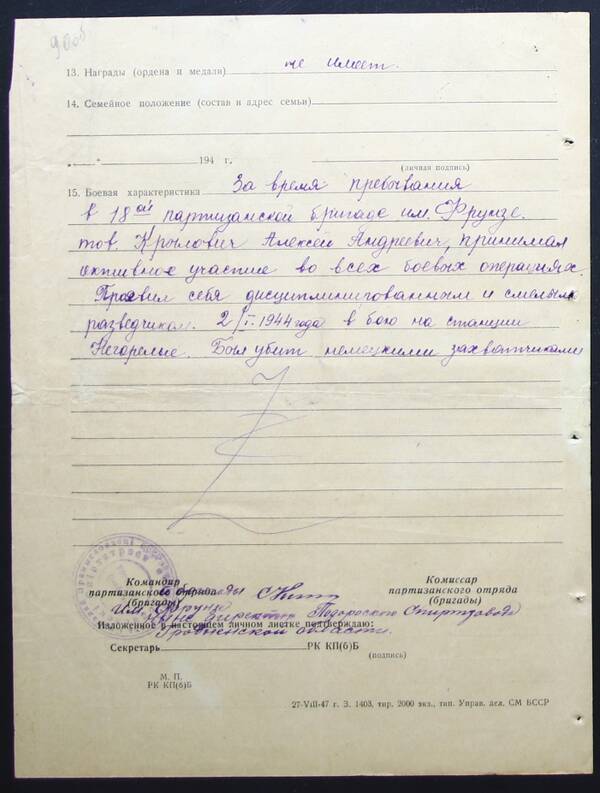 13. Награды (ордена и медали) не имеет.
14. Семейное положение (состав и адрес семьи)
194 г.
(личная подпись)
15. Боевая характеристика За время пребывания
в 18ой партизанской бригаде им. Фрунзе.
тов. Крылович Алексей Андреевич, принимал
активное участие во всех боевых операциях.
Проявил себя дисциплинированным и смелым
разведчиком. 2/I. 1944 года в бою на станции
Негорелые. Был убит немецкими захватчиками
Командир
партизанского отряда
(бригады)
Комиссар
партизанского отряда
(бригады)
бригады
им. Фрунзе
директор Подоросского Спиртзавода
Изложенное в настоящем личном листке подтверждаю:
Гродненской области.
Секретарь РК КП(б)Б
(подпись)
М. П.
РК КП(б)Б
27-VIII-47 г. З. 1403, тир. 2000 экз., тип. Управ. дел. СМ БССР